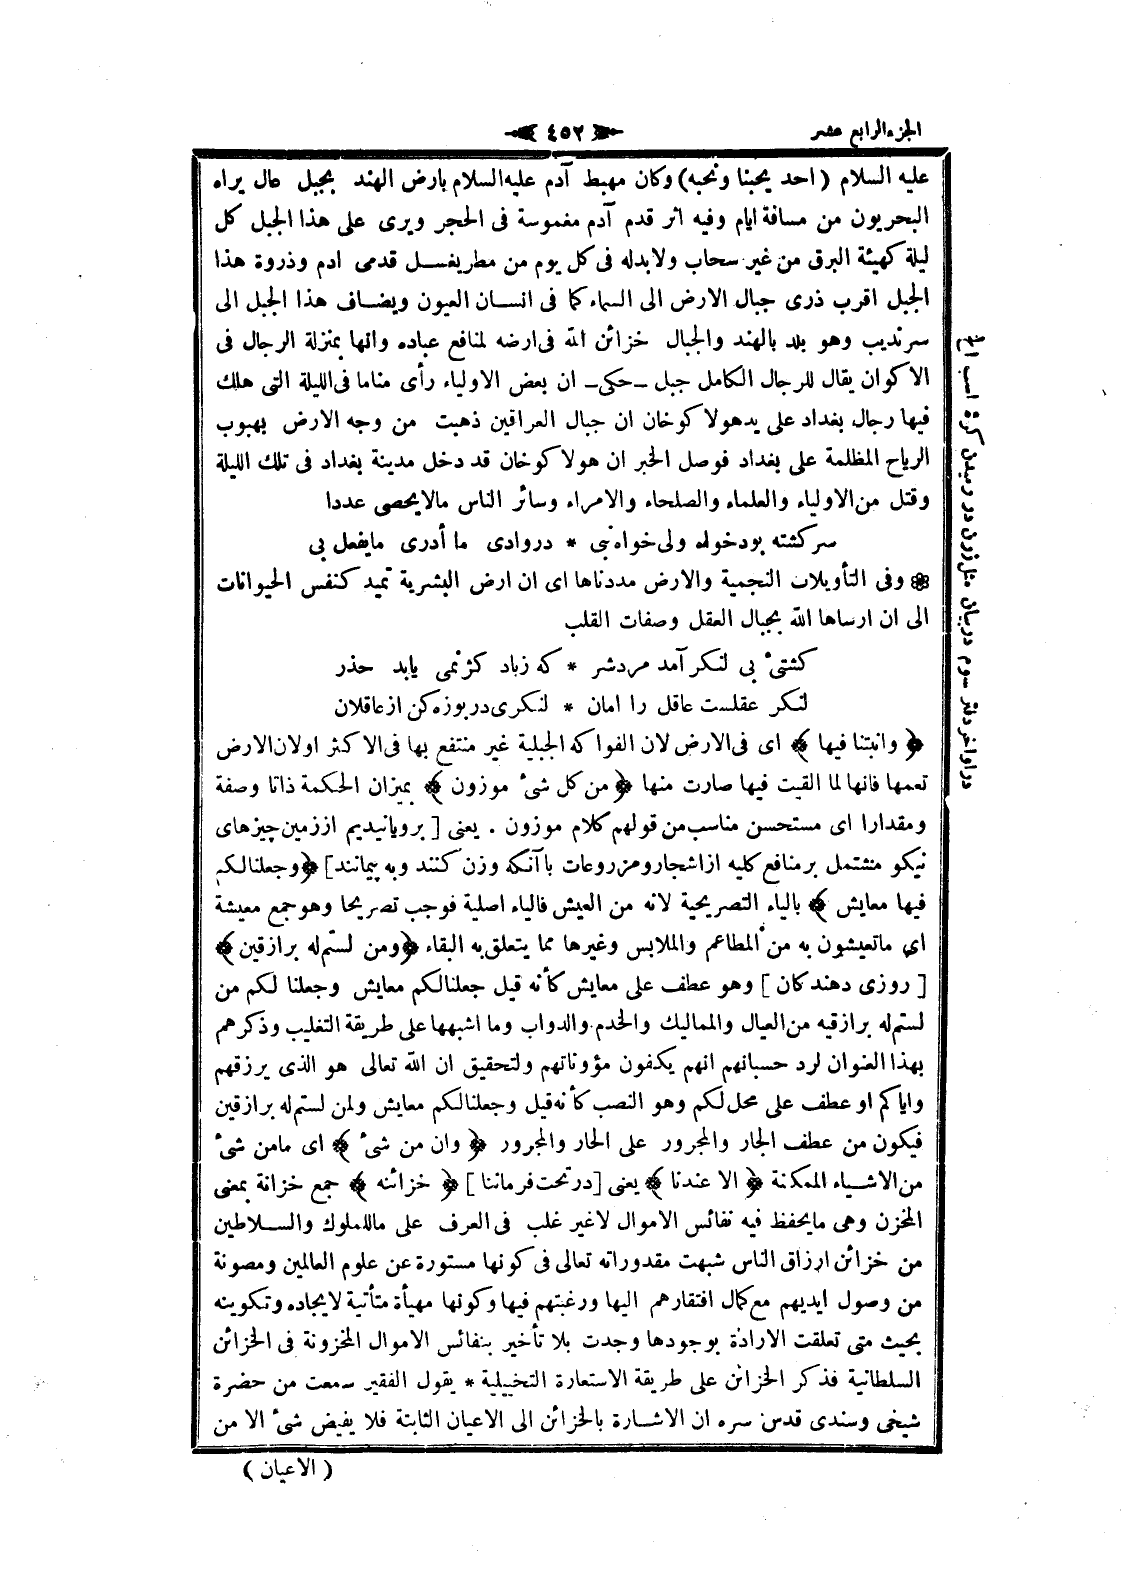 الجزء الرابع عشر
٤٥٢
عليه السلام (احد يحبنا ونحبه) وكان مهبط آدم عليه السلام بارض الهند بجبل عال يراه
البحريون من مسافة ايام وفيه اثر قدم آدم مغموسة فى الحجر ويرى على هذا الجبل كل
ليلة كهيئة البرق من غير سحاب ولابدله فى كل يوم من مطر يغسل قدمى ادم وذروة هذا
الجبل اقرب ذرى جبال الارض الى السماء كما فى انسان العيون ويضاف هذا الجبل الى
سرنديب وهو بلد بالهند والجبال خزائن الله فى ارضه لمنافع عباده وانها بمنزلة الرجال فى
الاكوان يقال للرجال الكامل جبل ـ حكى ـ ان بعض الاولياء رأى مناما فى الليلة التى هلك
فيها رجال بغداد على يد هولاكوخان ان جبال العراقين ذهبت من وجه الارض بهبوب
الرياح المظلمة على بغداد فوصل الخبر ان هولاكوخان قد دخل مدينة بغداد فى تلك الليلة
وقتل من الاولياء والعلماء والصلحاء والامراء وسائر الناس مالا يحصى عددا
سركشته بود خواه ولى خواه نبى * در وادى ما أدرى ما يفعل بى
❁ وفى التأويلات النجمية والارض مددناها اى ان ارض البشرية تميد كنفس الحيوانات
الى ان ارساها الله بجبال العقل وصفات القلب
كشتىء بى لنكر آمد مردشر * كه زباد كژ نمى يابد حذر
لنكر عقلست عاقل را امان * لنكرى دريوزه كن از عاقلان
﴿ وانبتنا فيها ﴾ اى فى الارض لان الفواكه الجبلية غير منتفع بها فى الاكثر اولان الارض
تعمها فانها لما القيت فيها صارت منها ﴿ من كل شىء موزون ﴾ بميزان الحكمة ذاتا وصفة
ومقدارا اى مستحسن مناسب من قولهم كلام موزون . يعنى [ برويانيديم اززمين چيزهاى
نيكو مشتمل بر منافع كليه از اشجار ومزروعات با آنكه وزن كنند وبه پيمانند] ﴿ وجعلنا لكم
فيها معايش ﴾ بالياء التصريحية لانه من العيش فالياء اصلية فوجب تصريحا وهو جمع معيشة
اى ما تعيشون به من المطاعم والملابس وغيرها مما يتعلق به البقاء ﴿ ومن لستم له برازقين ﴾
[ روزى دهندكان ] وهو عطف على معايش كأنه قيل جعلنا لكم معايش وجعلنا لكم من
لستم له برازقيه من العيال والمماليك والخدم والدواب وما اشبهها على طريقة التغليب وذكرهم
بهذا العنوان لرد حسبانهم انهم يكفون مؤوناتهم ولتحقيق ان الله تعالى هو الذى يرزقهم
واياكم او عطف على محل لكم وهو النصب كأنه قيل وجعلنا لكم معايش ولمن لستم له برازقين
فيكون من عطف الجار والمجرور على الجار والمجرور ﴿ وان من شىء ﴾ اى ما من شىء
من الاشياء الممكنة ﴿ الا عندنا ﴾ يعنى [ در تحت فرماننا ] ﴿ خزائنه ﴾ جمع خزانة بمعنى
المخزن وهى ما يحفظ فيه نفائس الاموال لاغير غلب فى العرف على ما للملوك والسلاطين
من خزائن ارزاق الناس شبهت مقدوراته تعالى فى كونها مستورة عن علوم العالمين ومصونة
من وصول ايديهم مع كمال افتقارهم اليها ورغبتهم فيها وكونها مهيأة متأتية لايجاده وتكوينه
بحيث متى تعلقت الارادة بوجودها وجدت بلا تأخير بنفائس الاموال المخزونة فى الخزائن
السلطانية فذكر الخزائن على طريقة الاستعارة التخييلية * يقول الفقير سمعت من حضرة
شيخى وسندى قدس سره ان الاشارة بالخزائن الى الاعيان الثابتة فلا يفيض شىء الا من
( الاعيان )
در اواخر دفتر سوم در بيان مثل زدن در رميدن كرة اسب الخ